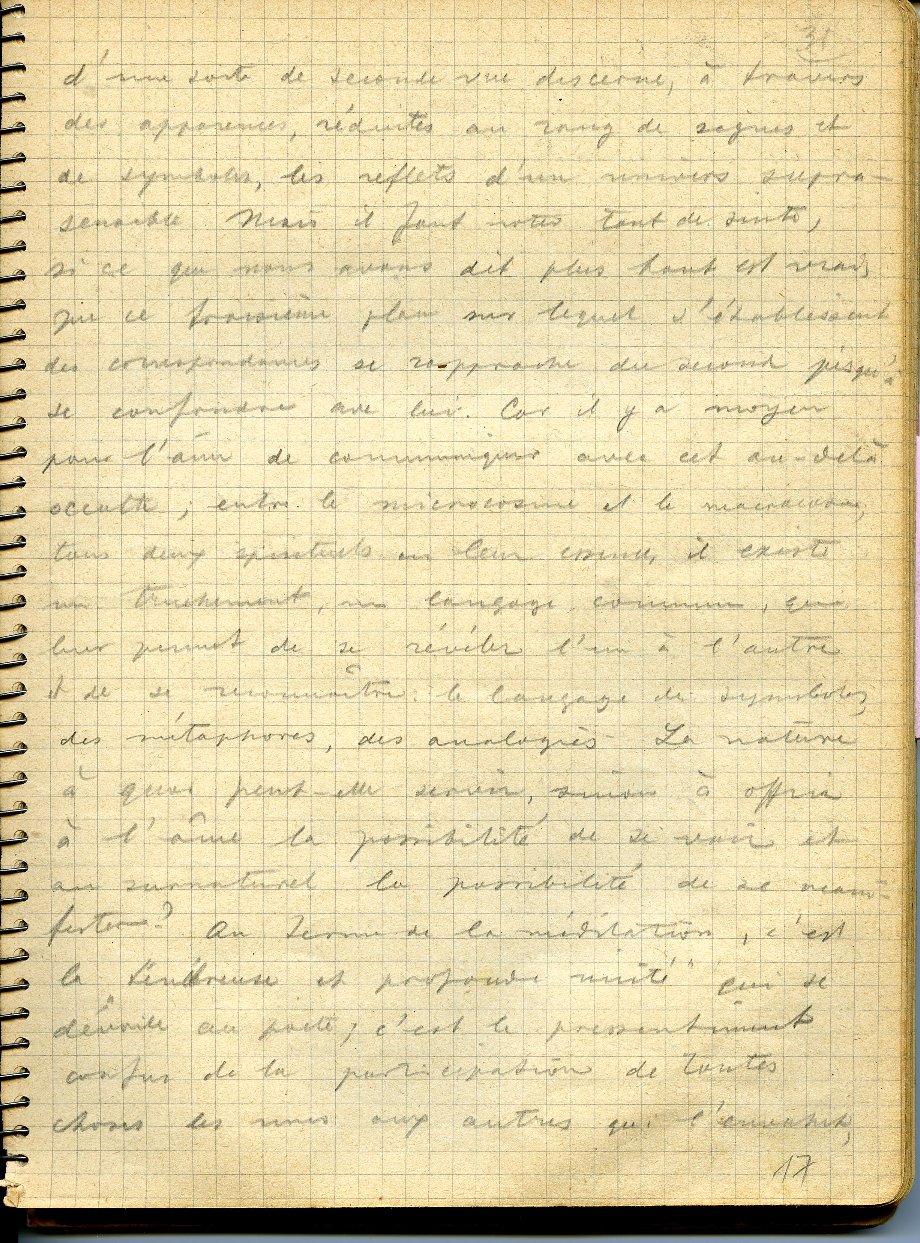 31
d'une sorte de seconde vue discerne, à travers
des apparences, réduites au rang de signes et
de symboles, les reflets d'un univers supra-
sensible. Mais il faut noter tout de suite,
si ce que nous avons dit plus haut est vrai,
que ce troisième plan sur lequel s'établissent
des correspondances se rapproche du second jusqu'à
se confondre avec lui. Car il y a moyen
pour l'âme de communiquer avec cet au-delà
occulte ; entre le microcosme et le macrocosme,
tous deux spirituels en leur essence, il existe
un truchement, un langage commun, qui
leur permet de se révéler l'un à l'autre
et de se reconnaître : le langage des symboles,
des métaphores, des analogies. La nature
à quoi peut-elle servir, sinon à offrir
à l'âme la possibilité de se voir et
au surnaturel la possibilité de se mani-
fester ? Au terme de la méditation, c'est
la "ténébreuse et profonde unité" qui se
dévoile au poète ; c'est le pressentiment
confus de la participation de toutes
choses les unes aux autres qui l'envahit,
17